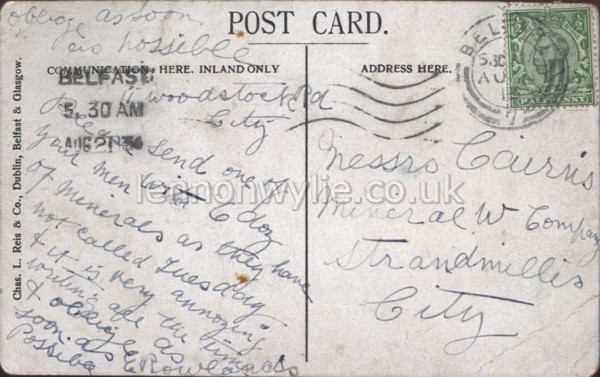 oblige as soon
as possible
POST CARD.
COMMUNICATION HERE. INLAND ONLY
ADDRESS HERE.
BELFAST
5.30 AM
AUG 21
Woodstock Rd
City
send one of
your men with 6 doz
of minerals as they have
not called Tuesday
& it is very annoying
writing all the time
& oblige as
soon as
Possible E Rowlands
Messrs Cairns
Mineral W Company
Strandmillis
City
Chas. L. Reis & Co., Dublin, Belfast & Glasgow.
lennonwylie.co.uk